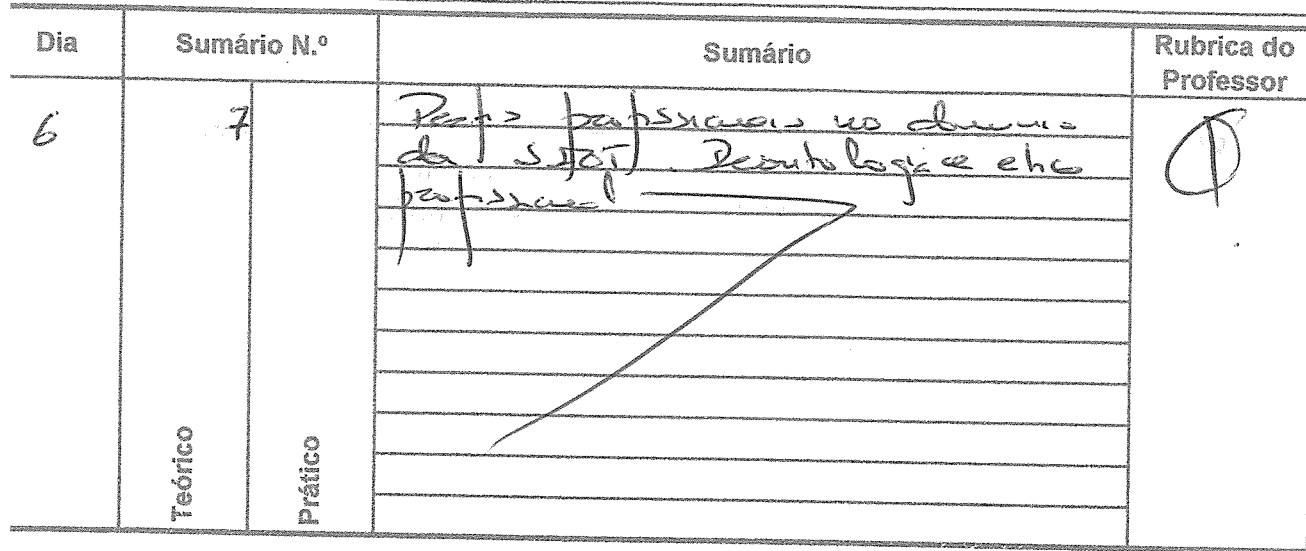 Dia Sumário N.º Sumário Rubrica do Professor
6 7 Perfis profissionais no domínio
da Deontologia e ética
profissional
Teórico Prático